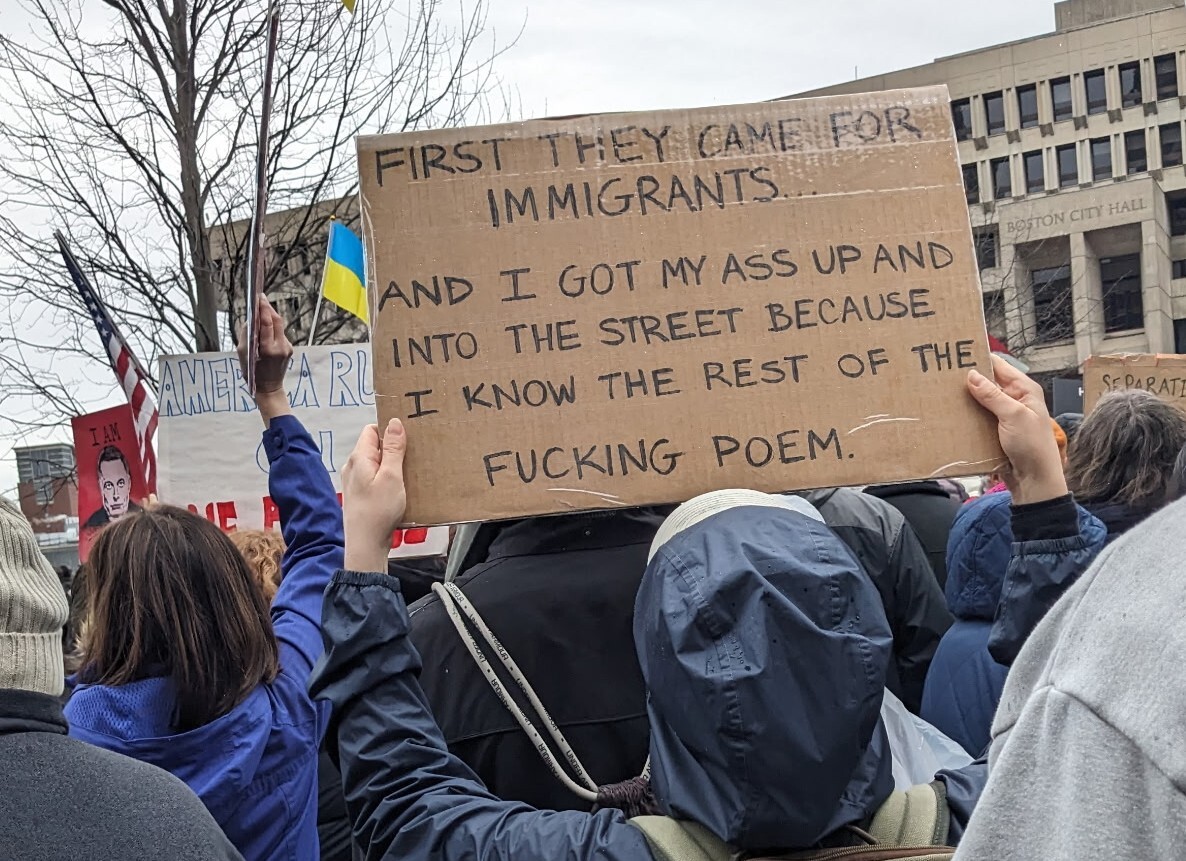 FIRST THEY CAME FOR
IMMIGRANTS...
AND I GOT MY ASS UP AND
INTO THE STREET BECAUSE
I KNOW THE REST OF THE
FUCKING POEM.
BOSTON CITY HALL
I AM